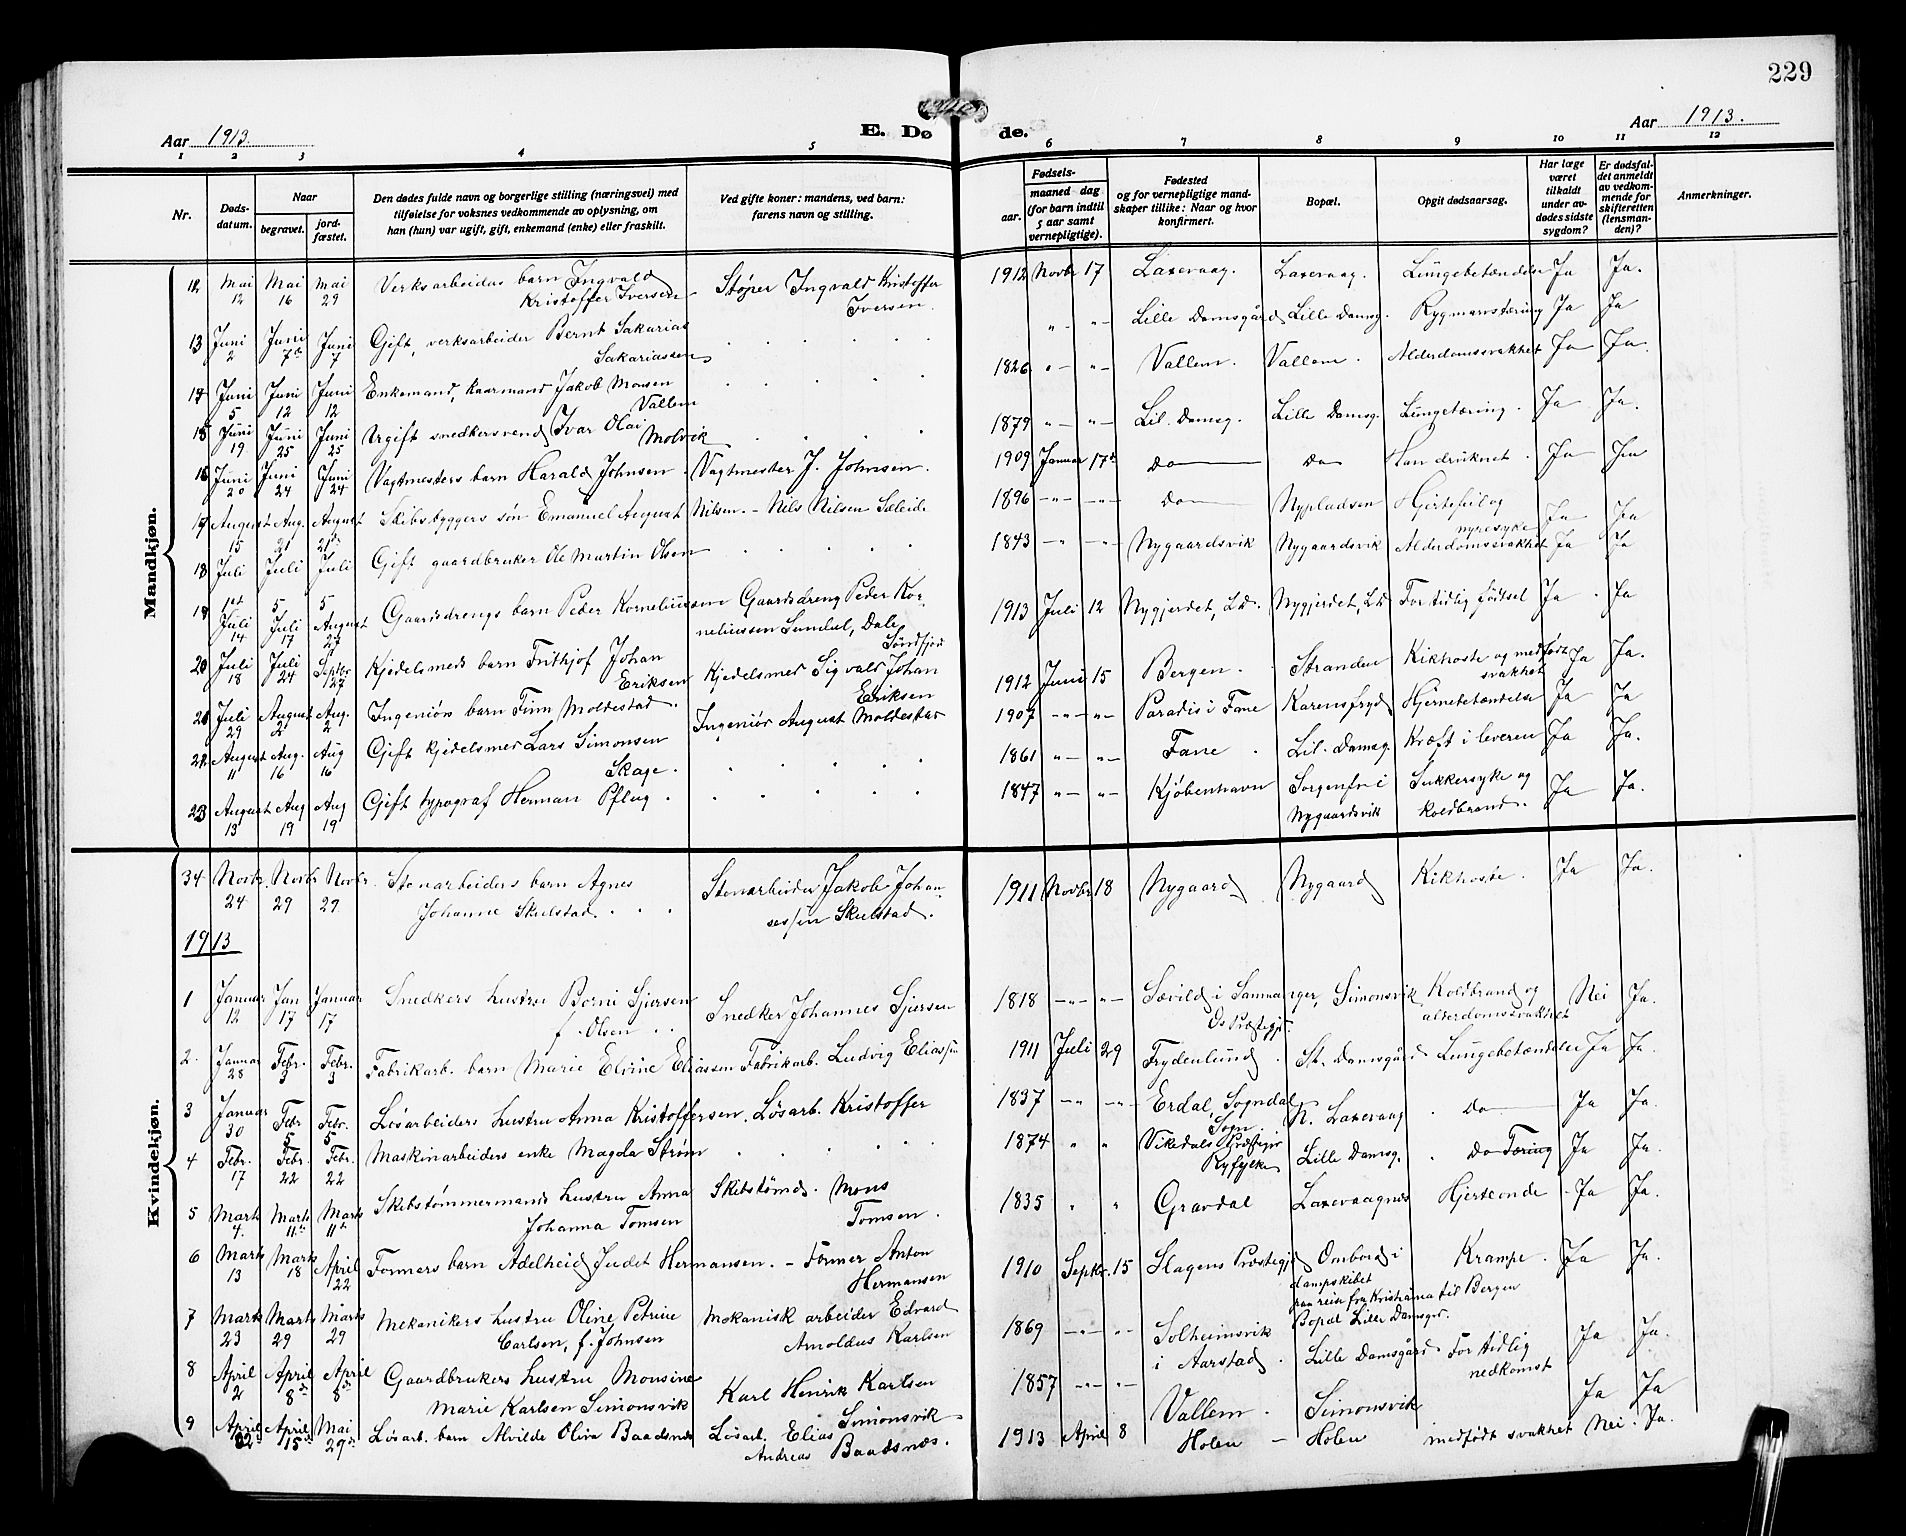 229
Aar 1913.
E. Dø de.
Aar 1913.
1 2 3 4 5 6 7 8 9 10 11 12
Nr.
Døds-datum.
Naar
begravet.
jord-fæstet.
Den dødes fulde navn og borgerlige stilling (næringsvei) med
tilføielse for voksnes vedkommende av oplysning, om
han (hun) var ugift, gift, enkemand (enke) eller fraskilt.
Ved gifte koner: mandens, ved barn:
farens navn og stilling.
Fødsels-
aar. maaned dag
(for barn indtil
5 aar samt
vernepligtige).
Fødested
og for vernepligtige mand-
skaper tillike: Naar og hvor
konfirmert.
Bopæl.
Opgit dødsaarsag.
Har læge
været
tilkaldt
under av-
dødes sidste
sygdom?
Er dødsfal-
det anmeldt
av vedkom-
mende for
skifteretten
(lensman-
den)?
Anmerkninger.
Mandkjøn.
12 Mai 12 Mai 16 Mai 29 Verksarbeides barn Ingvald Kristoffer Iversen Støper Ingvald Kristoffer Iversen. 1912 Novbr 17 Laxevaag. Laxevaag. Lungebetændelse Ja Ja.
13 Juni 2 Juni 7de Juni 7 Gift, verksarbeider Bernt Sakarias Sakariassen " " Lille Damsgård Lille Damsg. Rygmarvstæring Ja Ja
14 Juni 5 Juni 12 Juni 12 Enkemand, kaarmand Jakob Monsen Vallem 1826 " " Vallem. Vallem. Alderdomssvakhet Ja Ja.
15 Juni 19 Juni 25 Juni 25 Ugift snedkersvend Ivar Olai Molvik 1879 " " Lil. Damsg. Lille Damsg. Lungetæring. Ja Ja.
16 Juni 20 Juni 24 Juni 24 Vagtmesters barn Harald Johnsen. Vagtmester J. Johnsen. 1909 Januar 17de do do Han druknet. Ja Ja
17 August 15 Aug. 21 August 21de Skibsbyggers søn Emanuel August Nilsen. - Nils Nilsen Sæleid. 1896 " " do Nypladsen Hjertefeil og nyresyke Ja Ja
18 Juli 1st Juli 5 Juli 5 Gift gaardbruker Ole Martin Olsen 1843 " " Nygaardsvik Nygaardsvik Alderdomssvakhet Ja Ja
19 Juli 14 Juli 17 August 27 Gaardsdrengs barn Peder Korneliussen Gaardsdreng Peder Kor-
neliussen Sundal, Dale, Søndfjord 1913 Juli 12 Nygjerdet, Ld. Nygjerdet, Ld. For tidlig fødsel Ja Ja
20 Juli 18 Juli 24 Septbr. 27 Kjedelsmeds barn Frithjof Johan Eriksen Kjedelsmed Sigvald Johan Eriksen 1912 Juni 15 Bergen. Stranden Kikhoste og medfødt svakhet Ja Ja.
21 Juli 29 August 2 Aug. 2 Ingeniørs barn Finn Moldestad. Ingeniør August Moldestad 1907 " " Paradis i Fane Karensfryd Hjernebetændelse Ja Ja
22 August 11 Aug. 16 Aug 16 Gift kjedelsmed Lars Simonsen Skage. 1861 " " Fane. Lil. Damsg. Kræft i leveren Ja Ja.
23 August 13 Aug 19 Aug 19 Gift typograf Herman Pflug. 1847 " " Kjøbenhavn Sorgenfri Nygaardsvik Sukkersyke og koldbrand. Ja Ja.
Kvindekjøn.
34 Novbr. 24 Novbr 29 Novbr. 29 Stenarbeiders barn Agnes Johanne Skulstad. Stenarbeider Jakob Johan-
nessen Skulstad. 1911 Novbr 18 Nygaard Nygaard Kikhoste. Ja Ja.
1913
1 Januar 12 Jan 17 Januar 17 Snedkers hustru Borni Sjursen f. Olsen Snedker Johannes Sjursen 1818 " " Sævild i Samnanger, Os Præstegj. Simonsvik Koldbrand og alderdomssvakhet Nei Ja.
2. Januar 28 Febr. 3 Febr. 3 Fabrikarb. barn Marie Elvine Eliassen Fabrikarb. Ludvig Eliassen 1911 Juli 29 Frydenlund. St. Damsgård Lungebetændelse Ja Ja.
3 Januar 30 Febr 5 Febr. 5 Løsarbeiders hustru Anna Kristoffersen. Løsarb. Kristoffer 1837 " " Erdal, Sogndal, Sogn. N. Laxevaag. do Ja Ja.
4 Febr. 17 Febr. 22 Febr. 22 Maskinarbeiders enke Magda Strøm 1874 " " Vikedals Præstegj. Ryfylke Lille Damsg. do Tæring Ja Ja.
5 Marts 4. Marts 11te Marts 11te Skibstømmermands hustru Anna Johanna Tomsen Skibstømd. Mons Tomsen. 1835 " " Gravdal Laxevaagnes Hjerteonde Ja Ja.
6 Marts 13 Marts 18 April 22 Formers barn Adelheid Judet Hermansen. - Former Anton Hermansen 1910 Septbr. 15 Slagens Præstegj. Ombord i dampskibet paa reise fra Kristiania til Bergen Bopæl Lille Damsgr. Krampe. Ja Ja.
7 Marts 23 Marts 29 Marts 29 Mekanikers hustru Oline Petrine Carlsen, f. Johnsen Mekanisk arbeider Edvard Arnoldus Karlsen 1869 " " Solheimsvik i Aarstad. Lille Damsgård For tidlig nedkomst Ja Ja.
8 April 2 April 8de April 8de Gaardbrukers hustru Monsine Marie Karlsen Simonsvik Karl Henrik Karlsen Simonsvik 1857 " " Vallem. Simonsvik Ja Ja
9 April 12 April 15de Mai 29de Løsarb. barn Alvilde Oliva Baadsnæs Løsarb. Elias Andreas Baadsnæs. 1913 April 8 Holen - Holen medfødt svakhet Nei. Ja.